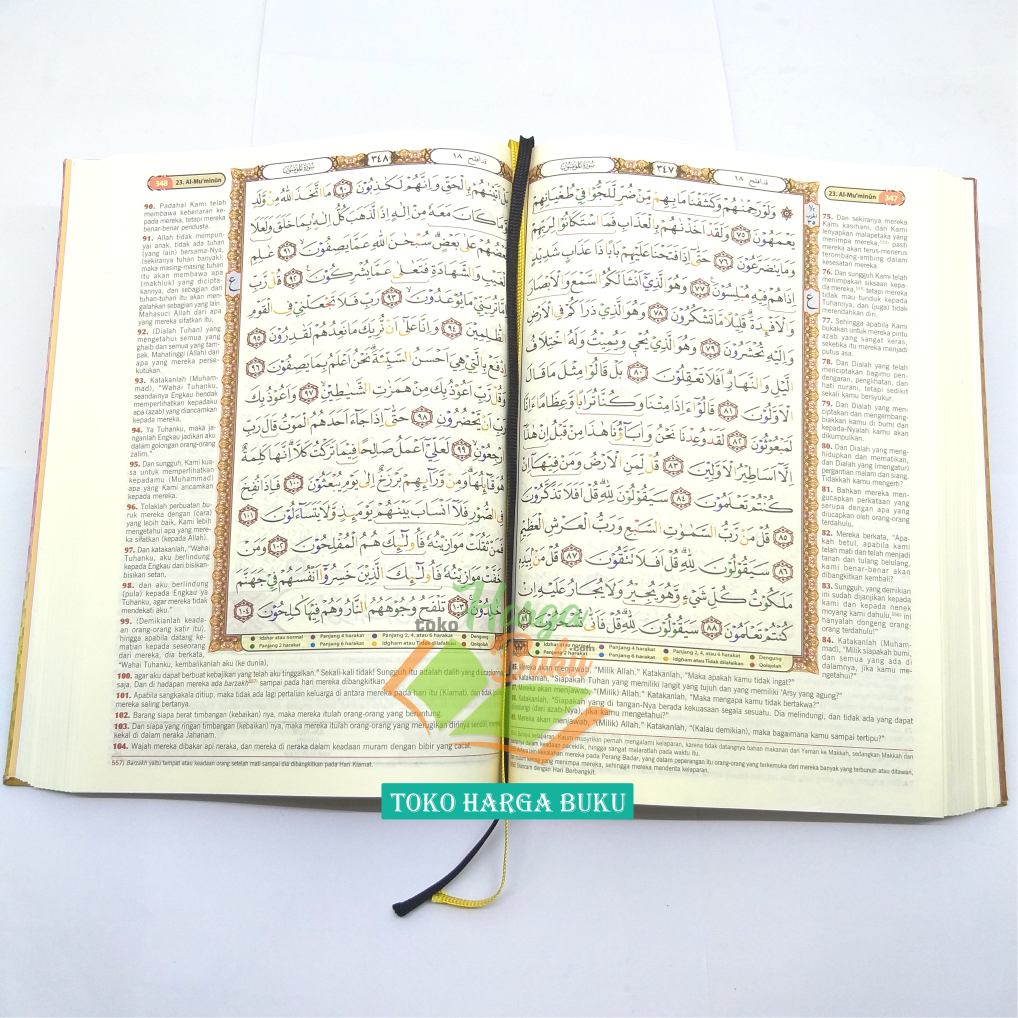 سورة المؤمنون
٣٤٧
قد افلح ١٨
23. Al-Mu'minūn 347
۞ وَلَوْ رَحِمْنٰهُمْ وَكَشَفْنَا مَا بِهِمْ مِّنْ ضُرٍّ لَّلَجُّوْا فِيْ طُغْيَانِهِمْ
يَعْمَهُوْنَ ٧٥ وَلَقَدْ اَخَذْنٰهُمْ بِالْعَذَابِ فَمَا اسْتَكَانُوْا لِرَبِّهِمْ
وَمَا يَتَضَرَّعُوْنَ ٧٦ حَتّٰٓى اِذَا فَتَحْنَا عَلَيْهِمْ بَابًا ذَا عَذَابٍ شَدِيْدٍ
اِذَا هُمْ فِيْهِ مُبْلِسُوْنَ ٧٧ وَهُوَ الَّذِيْٓ اَنْشَاَ لَكُمُ السَّمْعَ وَالْاَبْصَارَ
وَالْاَفْـِٕدَةَ قَلِيْلًا مَّا تَشْكُرُوْنَ ٧٨ وَهُوَ الَّذِيْ ذَرَاَكُمْ فِى الْاَرْضِ
وَاِلَيْهِ تُحْشَرُوْنَ ٧٩ وَهُوَ الَّذِيْ يُحْيٖ وَيُمِيْتُ وَلَهُ اخْتِلَافُ
الَّيْلِ وَالنَّهَارِ اَفَلَا تَعْقِلُوْنَ ٨٠ بَلْ قَالُوْا مِثْلَ مَا قَالَ
الْاَوَّلُوْنَ ٨١ قَالُوْٓا ءَاِذَا مِتْنَا وَكُنَّا تُرَابًا وَّعِظَامًا ءَاِنَّا
لَمَبْعُوْثُوْنَ ٨٢ لَقَدْ وُعِدْنَا نَحْنُ وَاٰبَاۤؤُنَا هٰذَا مِنْ قَبْلُ اِنْ هٰذَآ
اِلَّآ اَسَاطِيْرُ الْاَوَّلِيْنَ ٨٣ قُلْ لِّمَنِ الْاَرْضُ وَمَنْ فِيْهَآ اِنْ
كُنْتُمْ تَعْلَمُوْنَ ٨٤ سَيَقُوْلُوْنَ لِلّٰهِ قُلْ اَفَلَا تَذَكَّرُوْنَ
٨٥ قُلْ مَنْ رَّبُّ السَّمٰوٰتِ السَّبْعِ وَرَبُّ الْعَرْشِ الْعَظِيْمِ
٨٦ سَيَقُوْلُوْنَ لِلّٰهِ قُلْ اَفَلَا تَتَّقُوْنَ ٨٧ قُلْ مَنْۢ بِيَدِهٖ
مَلَكُوْتُ كُلِّ شَيْءٍ وَّهُوَ يُجِيْرُ وَلَا يُجَارُ عَلَيْهِ اِنْ
كُنْتُمْ تَعْلَمُوْنَ ٨٨ سَيَقُوْلُوْنَ لِلّٰهِ قُلْ فَاَنّٰى
Panjang 4 harakat
Panjang 2, 4, atau 6 harakat
Dengung
Panjang 2 harakat
Panjang 6 harakat
Idgham atau Tidak dilafalkan
Qolqolah
75. Dan sekiranya mereka
Kami kasihani, dan Kami
lenyapkan malapetaka yang
menimpa mereka, pasti
mereka akan terus-menerus
terombang-ambing dalam
kesesatan mereka.
76. Dan sungguh Kami telah
menimpakan siksaan kepa-
da mereka, tetapi mereka
tidak mau tunduk kepada
Tuhannya, dan (juga) tidak
merendahkan diri,
77. Sehingga apabila Kami
bukakan untuk mereka pintu
azab yang sangat keras,
seketika itu mereka menjadi
putus asa.
78. Dan Dialah yang telah
menciptakan bagimu pen-
dengaran, penglihatan, dan
hati nurani, tetapi sedikit
sekali kamu bersyukur.
79. Dan Dialah yang men-
ciptakan dan mengembang-
biakkan kamu di bumi dan
kepada-Nyalah kamu akan
dikumpulkan.
80. Dan Dialah yang meng-
hidupkan dan mematikan,
dan Dialah yang (mengatur)
pergantian malam dan siang.
Tidakkah kamu mengerti?
81. Bahkan mereka men-
gucapkan perkataan yang
serupa dengan apa yang
diucapkan oleh orang-orang
terdahulu.
82. Mereka berkata, "Apa-
kah betul, apabila kami
telah mati dan telah menjadi
tanah dan tulang belulang,
kami benar-benar akan
dibangkitkan kembali?
83. Sungguh, yang demikian
ini sudah dijanjikan kepada
kami dan kepada nenek
moyang kami dahulu, ini
hanyalah dongeng orang-
orang terdahulu!"
84. Katakanlah (Muham-
mad), "Milik siapakah bumi,
dan semua yang ada di
dalamnya, jika kamu me-
ngetahui?"
Mereka akan menjawab, "Milik Allah." Katakanlah, "Maka apakah kamu tidak ingat?"
Katakanlah, "Siapakah Tuhan yang memiliki langit yang tujuh dan yang memiliki 'Arsy yang agung?"
Mereka akan menjawab, "(Milik) Allah." Katakanlah, "Maka mengapa kamu tidak bertakwa?"
Katakanlah, "Siapakah yang di tangan-Nya berada kekuasaan segala sesuatu. Dia melindungi, dan tidak ada yang dapat
dilindungi (dari azab-Nya), jika kamu mengetahui?"
Mereka akan menjawab, "(Milik) Allah." Katakanlah, "(Kalau demikian), maka bagaimana kamu sampai tertipu?"
Kaum musyrikin pernah mengalami kelaparan, karena tidak datangnya bahan makanan dari Yaman ke Makkah, sedangkan Makkah dan
dalam keadaan paceklik, hingga sangat melaratlah pada waktu itu.
kekalahan mereka pada Perang Badar, yang dalam peperangan itu orang-orang yang terkemuka dari mereka banyak yang terbunuh atau ditawan,
yang menimpa mereka, sehingga mereka menderita kelaparan.
dengan Hari Berbangkit.
سورة المؤمنون
٣٤٨
قد افلح ١٨
348 23. Al-Mu'minūn
بَلْ اَتَيْنٰهُمْ بِالْحَقِّ وَاِنَّهُمْ لَكٰذِبُوْنَ ٩٠ مَا اتَّخَذَ اللّٰهُ مِنْ وَّلَدٍ
وَّمَا كَانَ مَعَهٗ مِنْ اِلٰهٍ اِذًا لَّذَهَبَ كُلُّ اِلٰهٍۢ بِمَا خَلَقَ وَلَعَلَا
بَعْضُهُمْ عَلٰى بَعْضٍ سُبْحٰنَ اللّٰهِ عَمَّا يَصِفُوْنَ ٩١ عٰلِمِ
الْغَيْبِ وَالشَّهَادَةِ فَتَعٰلٰى عَمَّا يُشْرِكُوْنَ ٩٢ قُلْ رَّبِّ
اِمَّا تُرِيَنِّيْ مَا يُوْعَدُوْنَ ٩٣ رَبِّ فَلَا تَجْعَلْنِيْ فِى الْقَوْمِ
الظّٰلِمِيْنَ ٩٤ وَاِنَّا عَلٰٓى اَنْ نُّرِيَكَ مَا نَعِدُهُمْ لَقٰدِرُوْنَ ٩٥
اِدْفَعْ بِالَّتِيْ هِيَ اَحْسَنُ السَّيِّئَةَ نَحْنُ اَعْلَمُ بِمَا يَصِفُوْنَ ٩٦
وَقُلْ رَّبِّ اَعُوْذُ بِكَ مِنْ هَمَزٰتِ الشَّيٰطِيْنِ ٩٧ وَاَعُوْذُ بِكَ
رَبِّ اَنْ يَّحْضُرُوْنِ ٩٨ حَتّٰٓى اِذَا جَاۤءَ اَحَدَهُمُ الْمَوْتُ قَالَ رَبِّ
ارْجِعُوْنِ ٩٩ لَعَلِّيْٓ اَعْمَلُ صَالِحًا فِيْمَا تَرَكْتُ كَلَّا اِنَّهَا كَلِمَةٌ
هُوَ قَاۤئِلُهَا وَمِنْ وَّرَاۤئِهِمْ بَرْزَخٌ اِلٰى يَوْمِ يُبْعَثُوْنَ ١٠٠ فَاِذَا نُفِخَ
فِى الصُّوْرِ فَلَآ اَنْسَابَ بَيْنَهُمْ يَوْمَئِذٍ وَّلَا يَتَسَاۤءَلُوْنَ ١٠١
فَمَنْ ثَقُلَتْ مَوَازِيْنُهٗ فَاُولٰۤئِكَ هُمُ الْمُفْلِحُوْنَ ١٠٢ وَمَنْ
خَفَّتْ مَوَازِيْنُهٗ فَاُولٰۤئِكَ الَّذِيْنَ خَسِرُوْٓا اَنْفُسَهُمْ فِيْ جَهَنَّمَ
خٰلِدُوْنَ ١٠٣ تَلْفَحُ وُجُوْهَهُمُ النَّارُ وَهُمْ فِيْهَا كٰلِحُوْنَ ١٠٤
Idzhar atau normal
Panjang 4 harakat
Panjang 2, 4, atau 6 harakat
Dengung
Panjang 2 harakat
Panjang 6 harakat
Idgham atau Tidak dilafalkan
Qolqolah
90. Padahal Kami telah
membawa kebenaran ke-
pada mereka, tetapi mereka
benar-benar pendusta.
91. Allah tidak mempun-
yai anak, tidak ada tuhan
(yang lain) bersama-Nya,
(sekiranya tuhan banyak),
maka masing-masing tuhan
itu akan membawa apa
(makhluk) yang dicipta-
kannya, dan sebagian dari
tuhan-tuhan itu akan men-
galahkan sebagian yang lain.
Mahasuci Allah dari apa
yang mereka sifatkan itu,
92. (Dialah Tuhan) yang
mengetahui semua yang
ghaib dan semua yang tam-
pak. Mahatinggi (Allah) dari
apa yang mereka perse-
kutukan.
93. Katakanlah (Muham-
mad), "Wahai Tuhanku,
seandainya Engkau hendak
memperlihatkan kepadaku
apa (azab) yang diancamkan
kepada mereka,
94. Ya Tuhanku, maka ja-
nganlah Engkau jadikan aku
dalam golongan orang-orang
zalim."
95. Dan sungguh, Kami kua-
sa untuk memperlihatkan
kepadamu (Muhammad)
apa yang Kami ancamkan
kepada mereka.
96. Tolaklah perbuatan bu-
ruk mereka dengan (cara)
yang lebih baik, Kami lebih
mengetahui apa yang mere-
ka sifatkan (kepada Allah).
97. Dan katakanlah, "Wahai
Tuhanku, aku berlindung
kepada Engkau dari bisikan-
bisikan setan,
98. dan aku berlindung
(pula) kepada Engkau ya
Tuhanku, agar mereka tidak
mendekati aku."
99. (Demikianlah keada-
an orang-orang kafir itu),
hingga apabila datang ke-
matian kepada seseorang
dari mereka, dia berkata,
"Wahai Tuhanku, kembalikanlah aku (ke dunia),
100. agar aku dapat berbuat kebajikan yang telah aku tinggalkan." Sekali-kali tidak! Sungguh itu adalah dalih yang diucapkan
saja. Dan di hadapan mereka ada barzakh sampai pada hari mereka dibangkitkan.
101. Apabila sangkakala ditiup, maka tidak ada lagi pertalian keluarga di antara mereka pada hari itu (Kiamat), dan tidak
mereka saling bertanya.
102. Barang siapa berat timbangan (kebaikan) nya, maka mereka itulah orang-orang yang beruntung.
103. Dan siapa yang ringan timbangan (kebaikan) nya, maka mereka itulah orang-orang yang merugikan dirinya sendiri, mereka
kekal di dalam neraka Jahanam.
104. Wajah mereka dibakar api neraka, dan mereka di neraka dalam keadaan muram dengan bibir yang cacat.
557) Barzakh yaitu tempat atau keadaan orang setelah mati sampai dia dibangkitkan pada Hari Kiamat.
toko
Harga
Buku
.com
TOKO HARGA BUKU